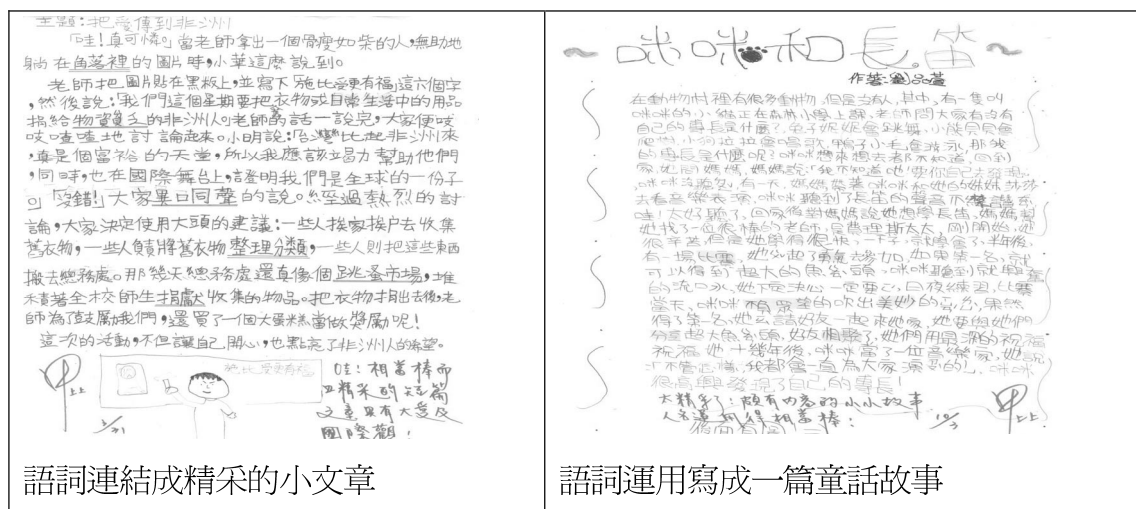 主題：把愛傳到非洲
「哇！真可憐。」當老師拿出一個骨瘦如柴的人，無助地
躺在角落裡的圖片時，小華這麼說到。
老師把圖片貼在黑板上，並寫下「施比受更有福」這六個字
，然後說：「我們這個星期要把衣物或日常生活中的用品
捐給物資匱乏的非洲人。」老師話一說完，大家便吱
吱喳喳地討論起來。小明說：「台灣比起非洲來
，真是個富裕的天堂，所以我應該竭力幫助他們
，同時，也在國際舞台上，證明我們是全球的一份子
「沒錯！」大家異口同聲的說。經過熱烈的討
論，大家決定使用大頭的建議：一些人挨家挨戶去收集
舊衣物，一些人負責將舊衣物整理分類，一些人則把這些東西
搬去總務處。那幾天總務處還真像個跳蚤市場，堆
積著全校師生捐獻收集的物品。把衣物捐出去後，老
師為了鼓勵我們，還買了一個大蛋糕當做獎勵呢！
這次的活動，不但讓自己開心，也點亮了非洲人的希望。
施比受更有福
哇！相當棒而
且精采的短篇
文章具有大愛及
國際觀！
甲上上
語詞連結成精采的小文章
咪咪和長笛
作者：劉品萱
在動物村裡有很多動物，但是沒有人，其中，有一隻叫
咪咪的小貓正在森林小學上課，老師問大家有沒有
自己的專長是什麼？兔子妮妮會跳舞，小熊貝貝會
爬樹，小狗拉拉會唱歌，鴨子小毛會游泳，那我
的專長是什麼呢？咪咪想來想去都不知道，回到
家，她問媽媽，媽媽說：「我不知道吔！要你自己去發現。」
有一天，媽媽帶著咪咪和她的妹妹莎莎
去看音樂表演，咪咪聽到了長笛的聲音不
哇！太好聽了，回家後對媽媽說她想學長笛，媽媽幫
她找了一位很棒的老師，是費理斯太太，剛開始，她
很辛苦，但是她學得很快，一下子，就學會了，半年後，
有一場比賽，她鼓起了勇氣去參加，如果第一名，就
可以得到超大的魚罐頭，咪咪聽到就興奮
的流口水，她下定決心一定要，日夜練習，比賽
當天，咪咪不負眾望的吹出美妙的聲音，果然
得了第一名，她邀請好友一起來她家，她要與她們
分享超大魚罐頭，好友相聚了，她們用最深的祝福
祝福她，十幾年後，咪咪當了一位音樂家，她說
：「不管怎樣，我都會一直為大家演奏的！」咪咪
很高興發現了自己的專長！
太精彩了！頗有內容的小小故事
人名運用得相當棒！
甲上上
語詞運用寫成一篇童話故事